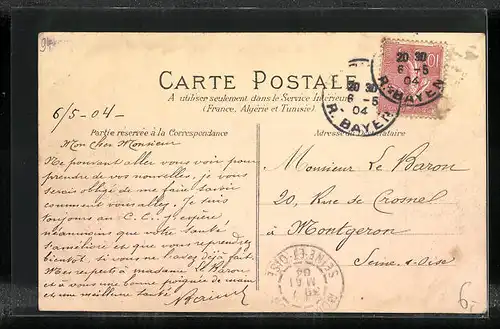 CARTE POSTALE
A utiliser seulement dans le Service Intérieur
(France, Algérie et Tunisie).
Partie réservée à la Correspondance
Adresse du Destinataire
20 30
6 - 5
04
R. BAYEN
20 30
6 - 5
04
R. BAYEN
6/5 - 04 -
Mon cher Monsieur
Ne pouvant aller vous voir pour
prendre de vos nouvelles, je vous
serais obligé de me faire savoir
comment vous allez. Je suis
toujours au C.C. j'espère
néanmoins que votre santé
s'améliore et que vous reprendrez
bientôt, si vous ne l'avez déjà fait.
Mes respects à madame Le Baron
et à vous une bonne poignée de main
et une meilleure santé
Monsieur Le Baron
20, Rue de Crosnel
à Montgeron
Seine & Oise
SEINE-ET-OISE
MAI
04
6.-